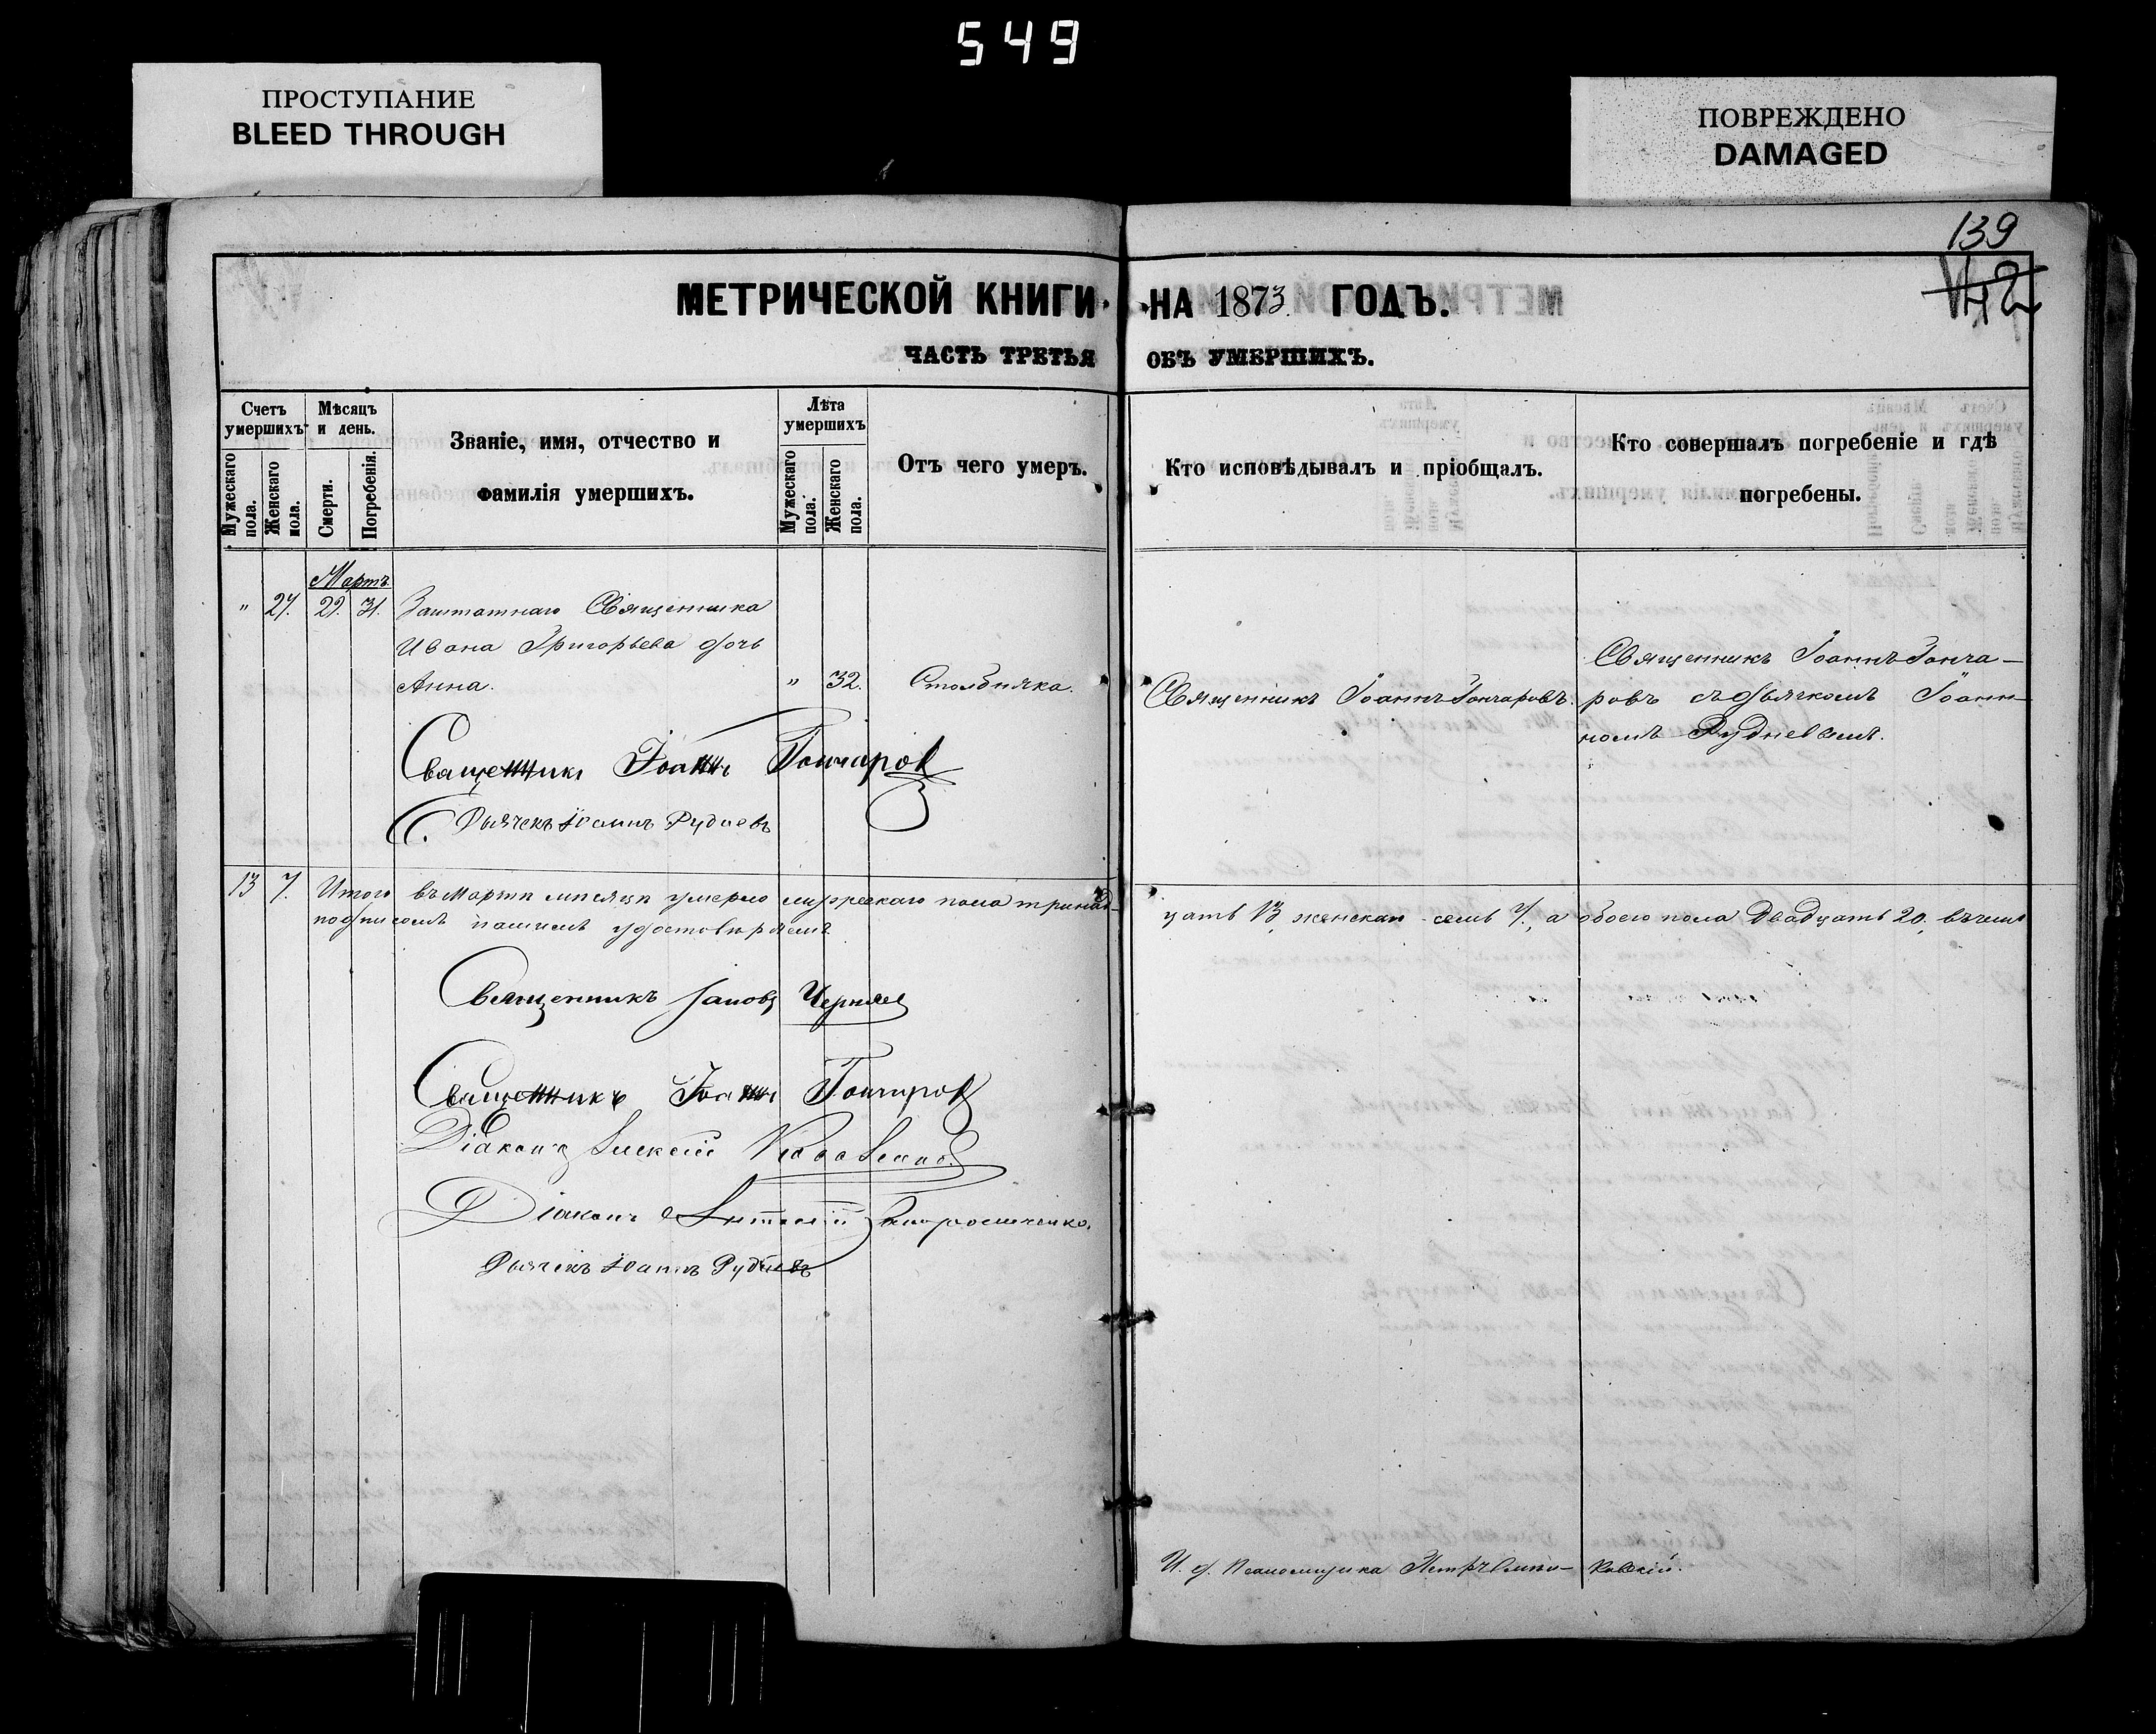 549
ПРОСТУПАНИЕ
BLEED THROUGH
ПОВРЕЖДЕНО
DAMAGED
139
142
МЕТРИЧЕСКОЙ КНИГИ НА 1873 ГОДЪ.
ЧАСТЬ ТРЕТЬЯ ОБЪ УМЕРШИХЪ.
Счетъ умершихъ
Мужескаго пола.
Женскаго пола.
Мѣсяцъ и день.
Смерти.
Погребенія.
Званіе, имя, отчество и
фамилія умершихъ.
Лѣта умершихъ
Мужескаго пола.
Женскаго пола.
Отъ чего умеръ.
Кто исповѣдывалъ и пріобщалъ.
Кто совершалъ погребеніе и гдѣ
погребены.
Мартъ
" 27. 29. 31. Заштатнаго Священника
Ивана Григорьева дочь
Анна. " 32. Столбняка.
Священникъ Іоаннъ Гончаровъ.
Священникъ Іоаннъ Гонча-
ровъ съ дьячкомъ Іоан-
номъ Рудневымъ.
Священникъ Іоаннъ Гончаров
Дьячекъ Іоаннъ Рудневъ
13 7. Итого въ Мартѣ мѣсяцѣ умерло мужескаго пола тринад-
цать 13, женскаго семь 7, а обоего пола Двадцать 20, въ чемъ
подписомъ нашимъ удостовѣряемъ.
Священникъ Іаковъ Черняев
Священникъ Іоаннъ Гончаров
Діаконъ Алексій
Діаконъ
Дьячекъ Іоаннъ Рудневъ
И. д. Псаломщика Петръ